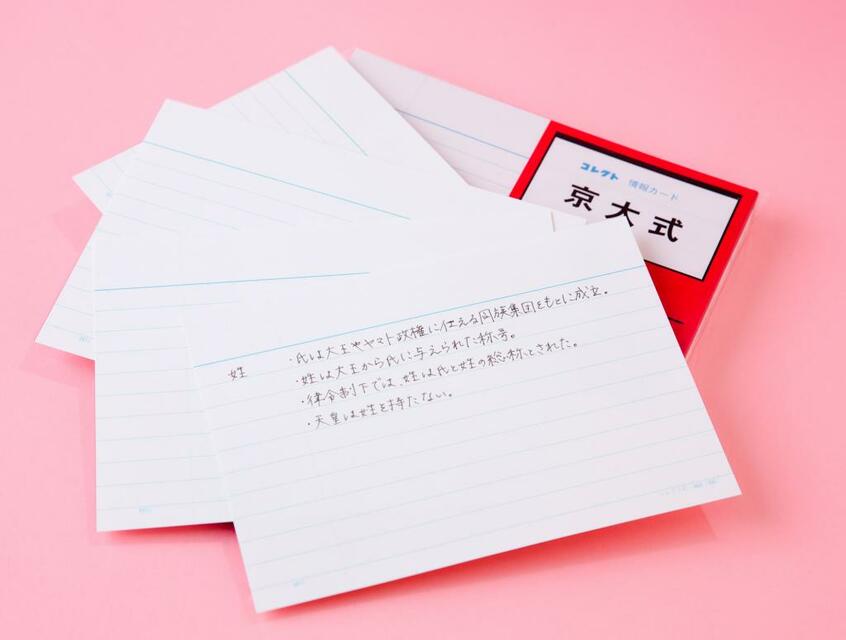 コレクト 情報カード
京大式
・氏は大王やヤマト政権に仕える同族集団をもとに成立。
姓 ・姓は大王から氏に与えられた称号。
・律令制下では、姓は氏と姓の総称とされた。
・天皇は姓を持たない。